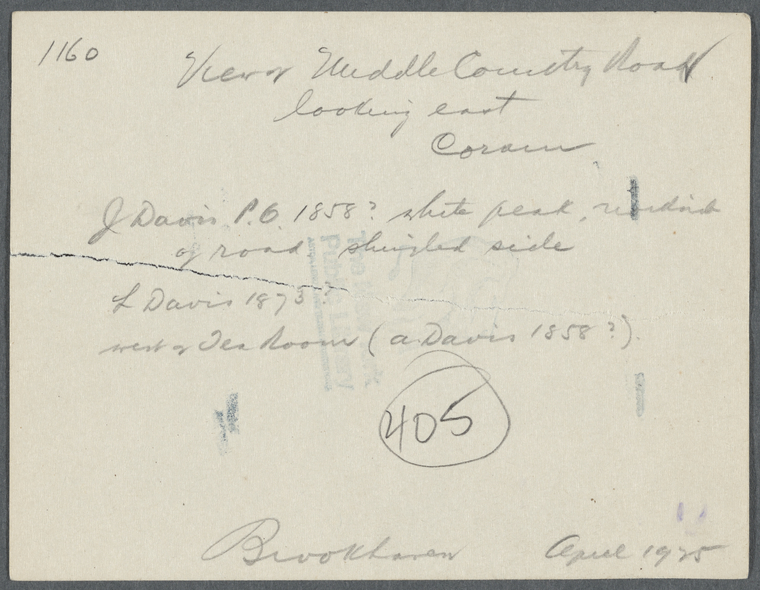 1160
View of Middle Country Road
looking east
Coram
J Davis P.O. 1858? white peak,
of road shingled side
L Davis 1873?
west of Tea Room (A Davis 1858?).
405
Brookhaven April 1925